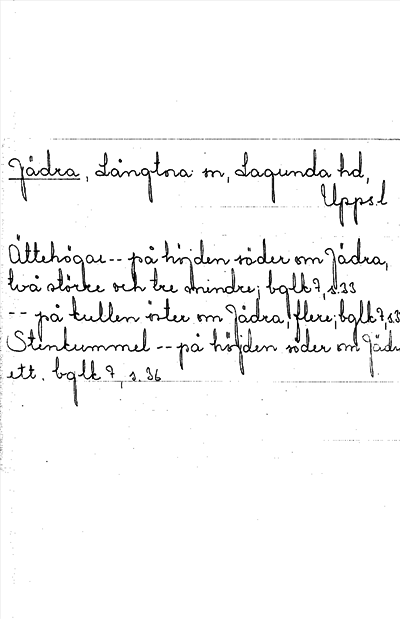 Jädra, Långtora sn, Lagunda hd,
Upps.l
Ättehögar -- på höjden söder om Jädra,
två större och tre mindre; bglk 7, s.33
-- på kullen öster om Jädra, flere; bglk 7, s.33
Stenkummel -- på höjden söder om Jäd
ett. bglk 7, s. 36